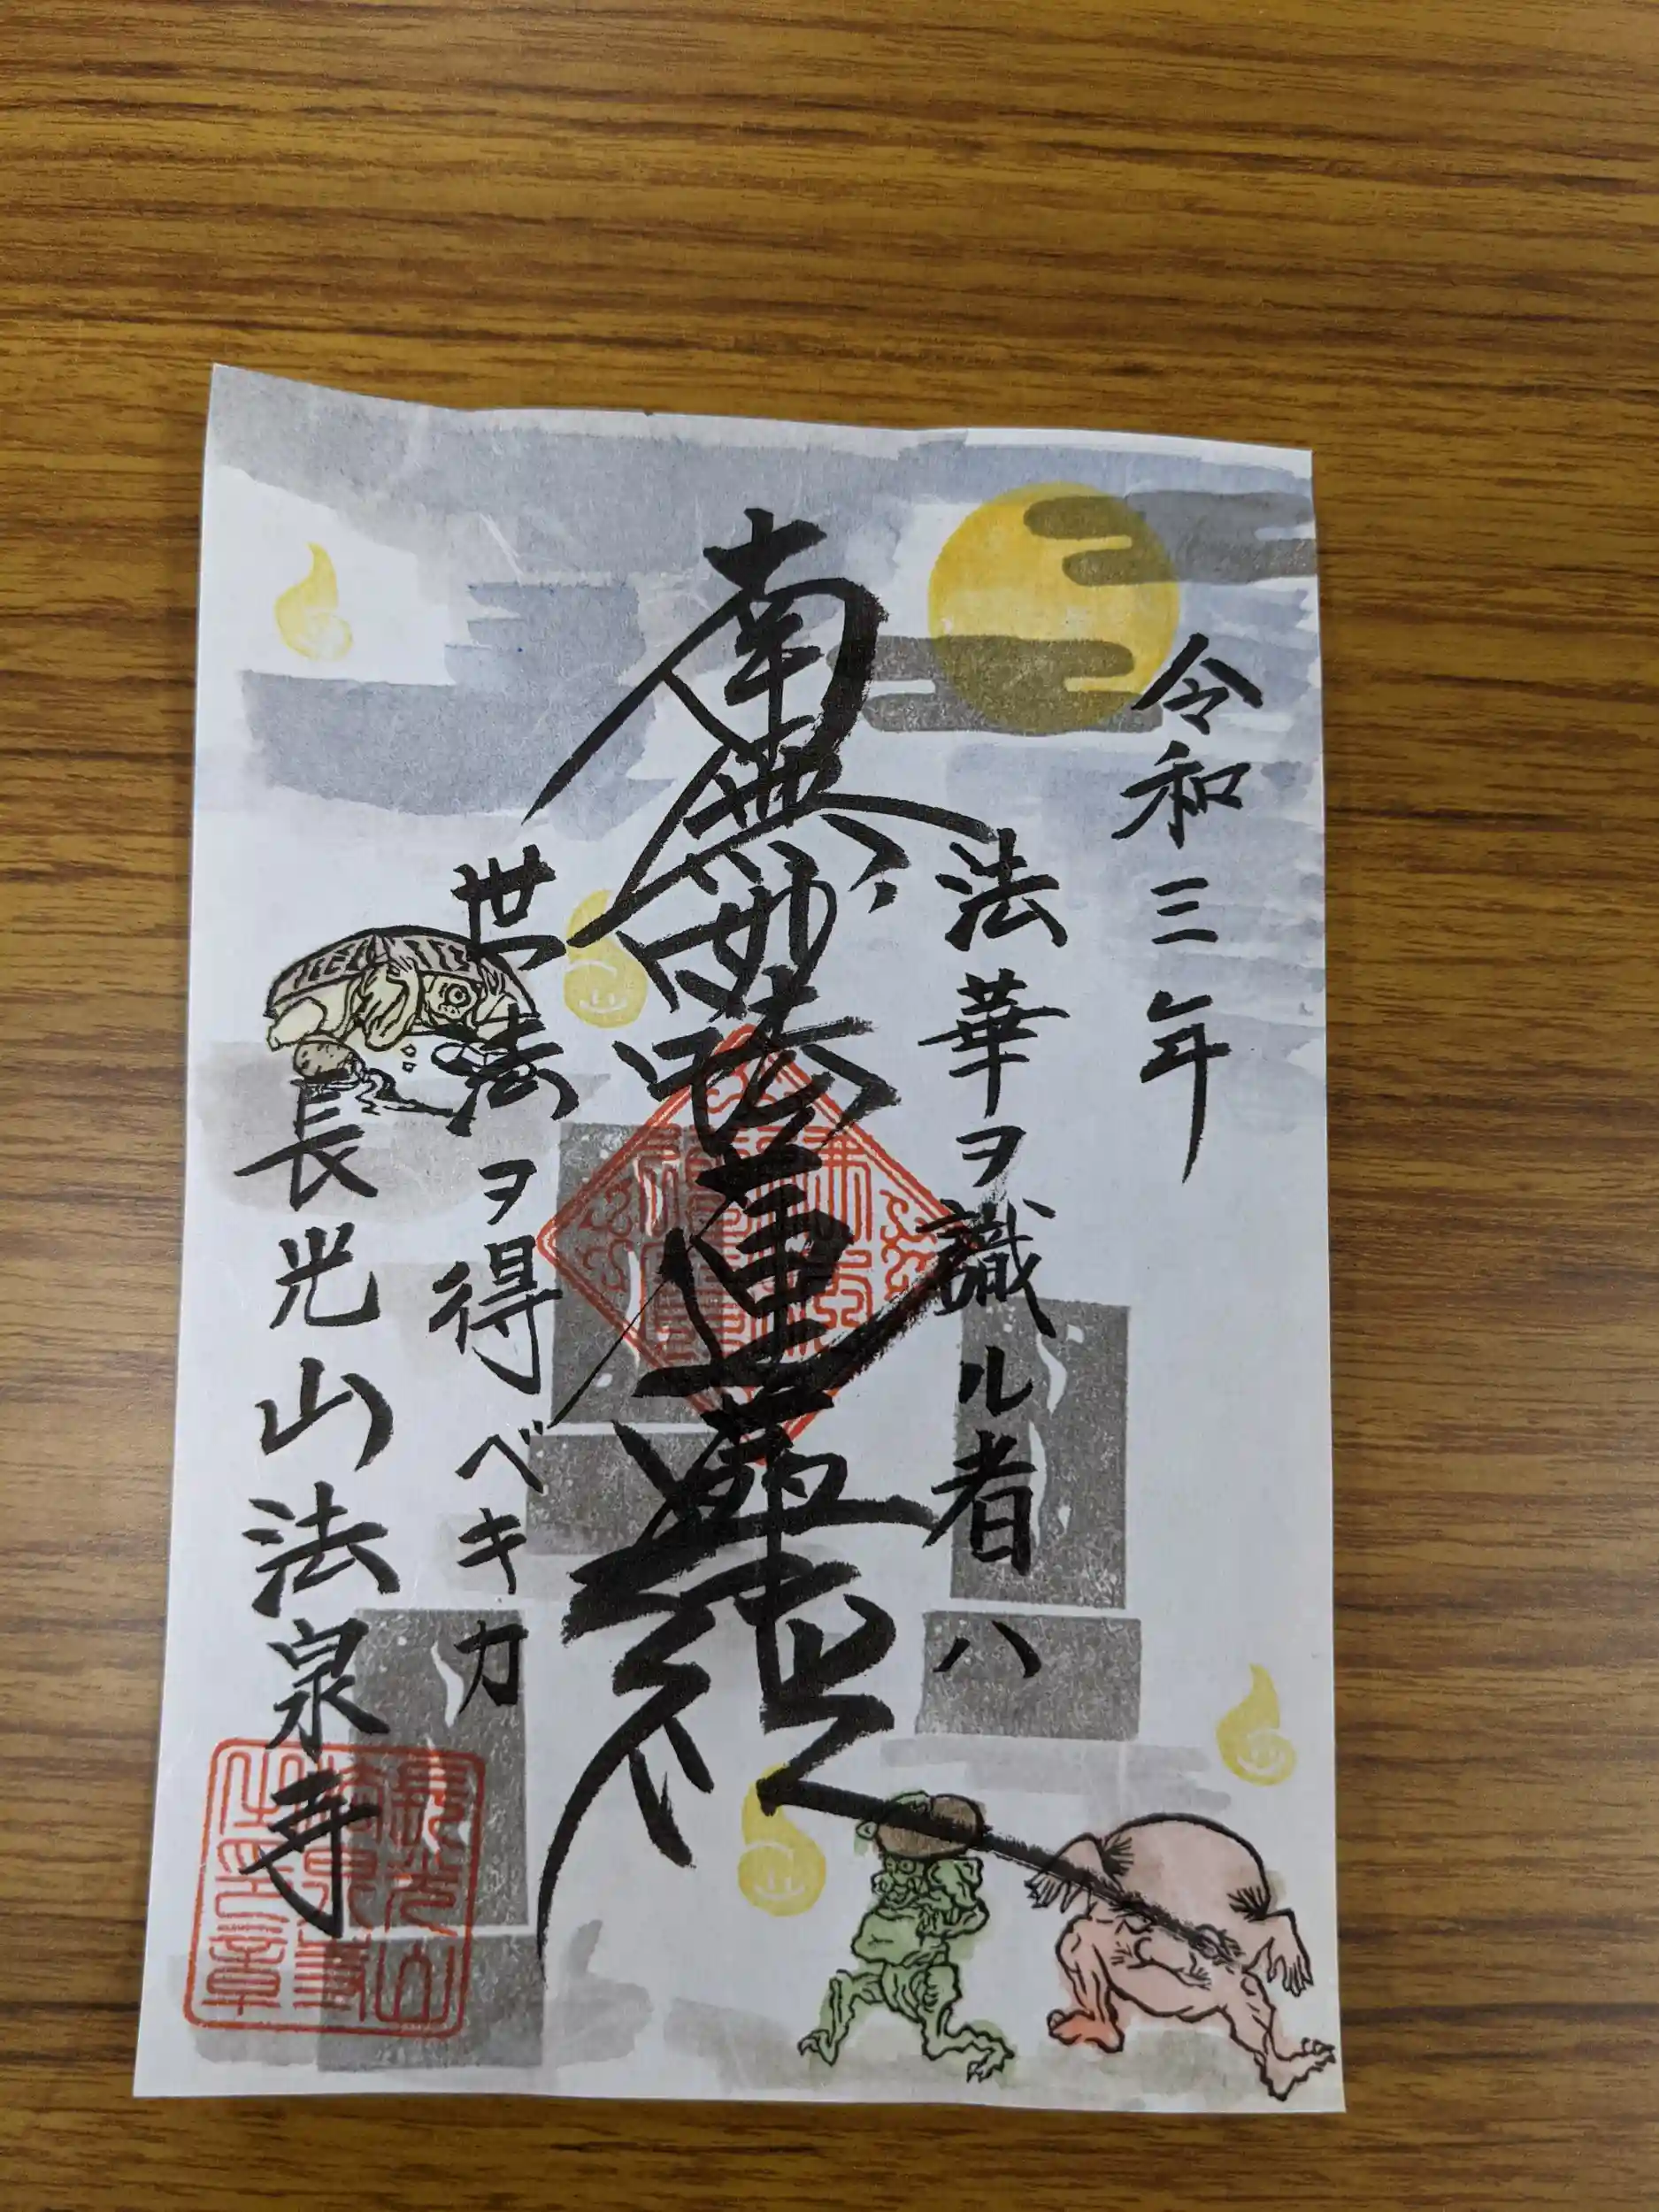 令和三年
法華ヲ識ル者ハ
南無妙法蓮華経
世法ヲ得ベキカ
長光山法泉寺